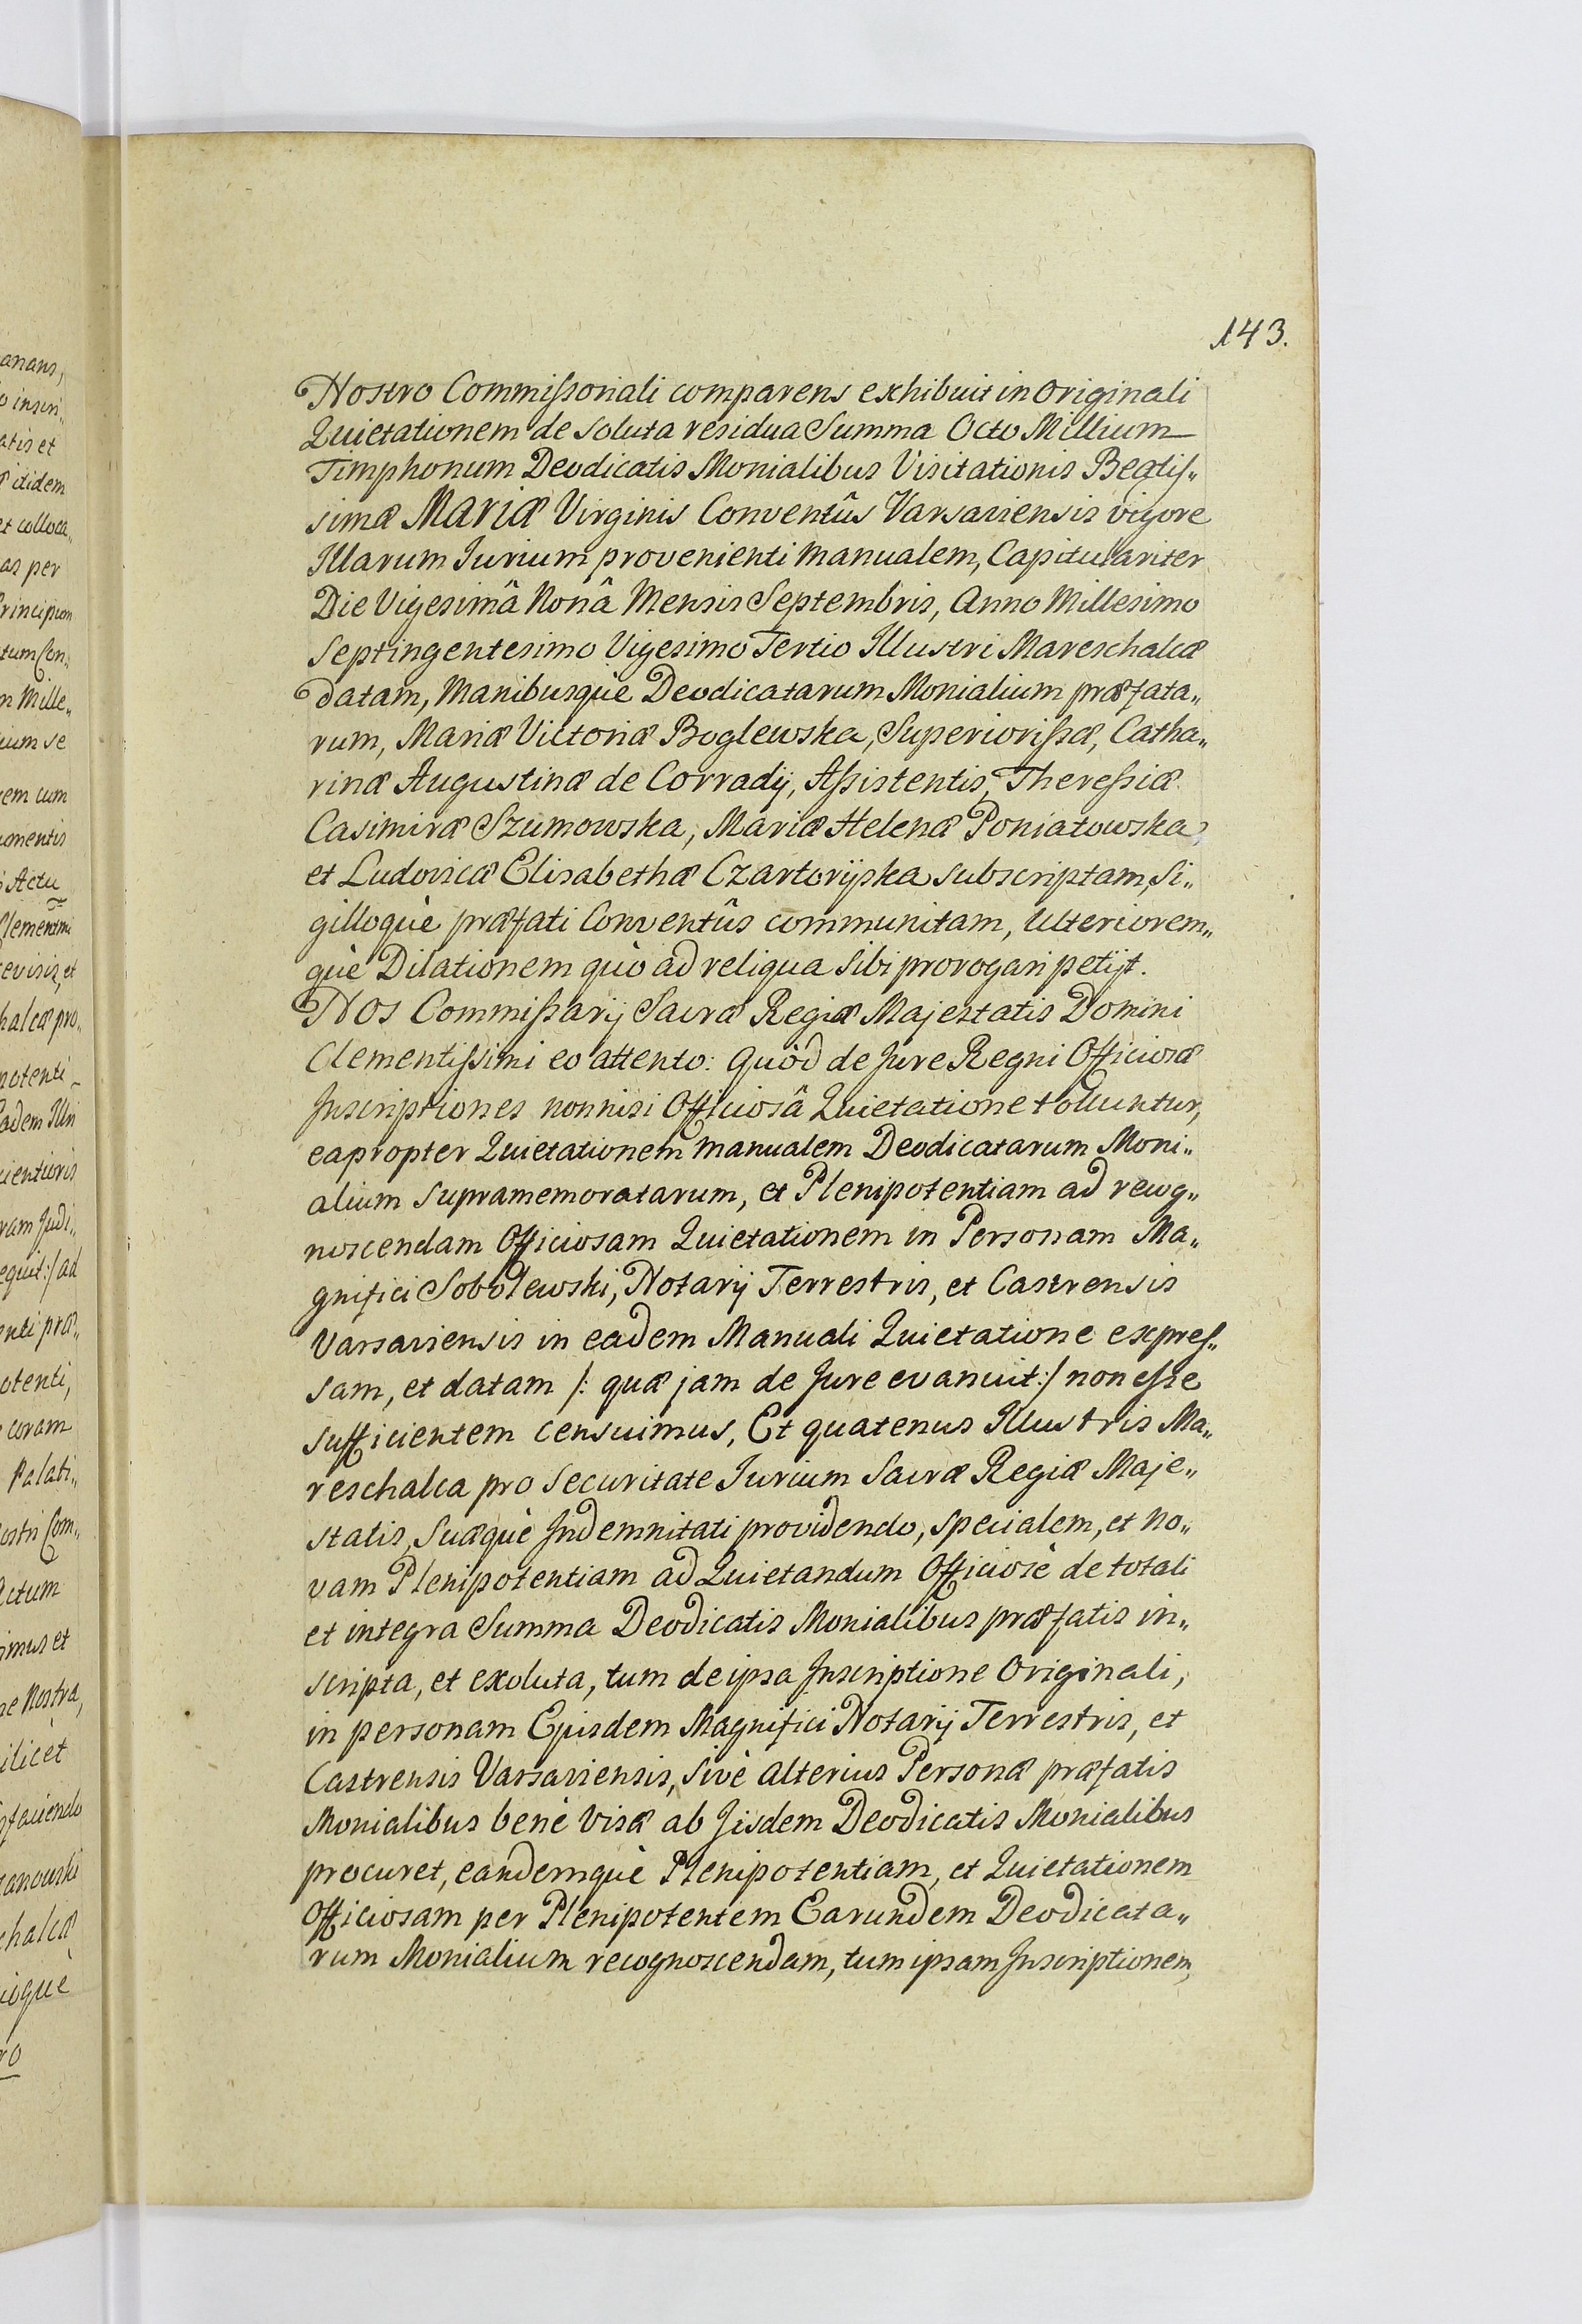 143.
Nostro Commiſsoriali comparens exhibuit in Originali
Quietationem de soluta residua Summa Octo Millium
Timphonum Deodicatis Monialibus Visitationis Beatiſ„
simæ MARIÆ Virginis Conventûs Varsaviensis vigore
Illarum Jurium provenienti manualem, Capitulariter
Die Vigesimâ Nonâ Mensis Septembris, Anno Millesimo
Septingentesimo Vigesimo Tertio Illustri Mareschalcæ
datam, Manibusquè Deodicatarum Monialium præfata„
rum, Mariæ Victoriæ Boglewska, Superioriſsæ, Catha„
rinæ Augustinæ de Corradij, Aſsistentis, Thereſsiæ
Casimiræ Szumowska, Mariæ Helenæ Poniatowska,
et Ludovicæ Elisabethæ Czartoryska subscriptam, Si„
gilloquè præfati Conventûs communitam, Ulteriorem„
què Dilationem quò ad reliqua sibi prorogari petijt.
Nos Commiſsarij Sacræ Regiæ Majestatis Domini
Clementiſsimi eo attento: Quòd de Jure Regni Officiosæ
Inscriptiones nonnisi Officiosâ Quietatione tolluntur,
eapropter Quietationem manualem Deodicatarum Moni„
alium supramemoratarum, et Plenipotentiam ad recog„
noscendam Officiosam Quietationem in Personam Ma„
gnifici Sobolewski, Notarij Terrestris, et Castrensis
Varsaviensis in eadem Manuali Quietatione expreſ„
sam, et datam /: quæ jam de Jure evanuit :/ non eſse
sufficientem censuimus, Et quatenus Illustris Ma„
reschalca pro securitate Jurium Sacræ Regiæ Maje„
statis, Suæquè Indemnitati providendo, specialem, et no„
vam Plenipotentiam ad Quietandum Officiosè de totali
et integra Summa Deodicatis Monialibus præfatis in„
scripta, et exoluta, tum de ipsa Inscriptione Originali,
in personam Ejusdem Magnifici Notarij Terrestris, et
Castrensis Varsaviensis, sivè alterius Personæ præfatis
Monialibus benè visæ ab Iisdem Deodicatis Monialibus
procuret, eandemquè Plenipotentiam, et Quietationem
Officiosam per Plenipotentem Earundem Deodicata„
rum Monialium recognoscendam, tum ipsam Inscriptionem,